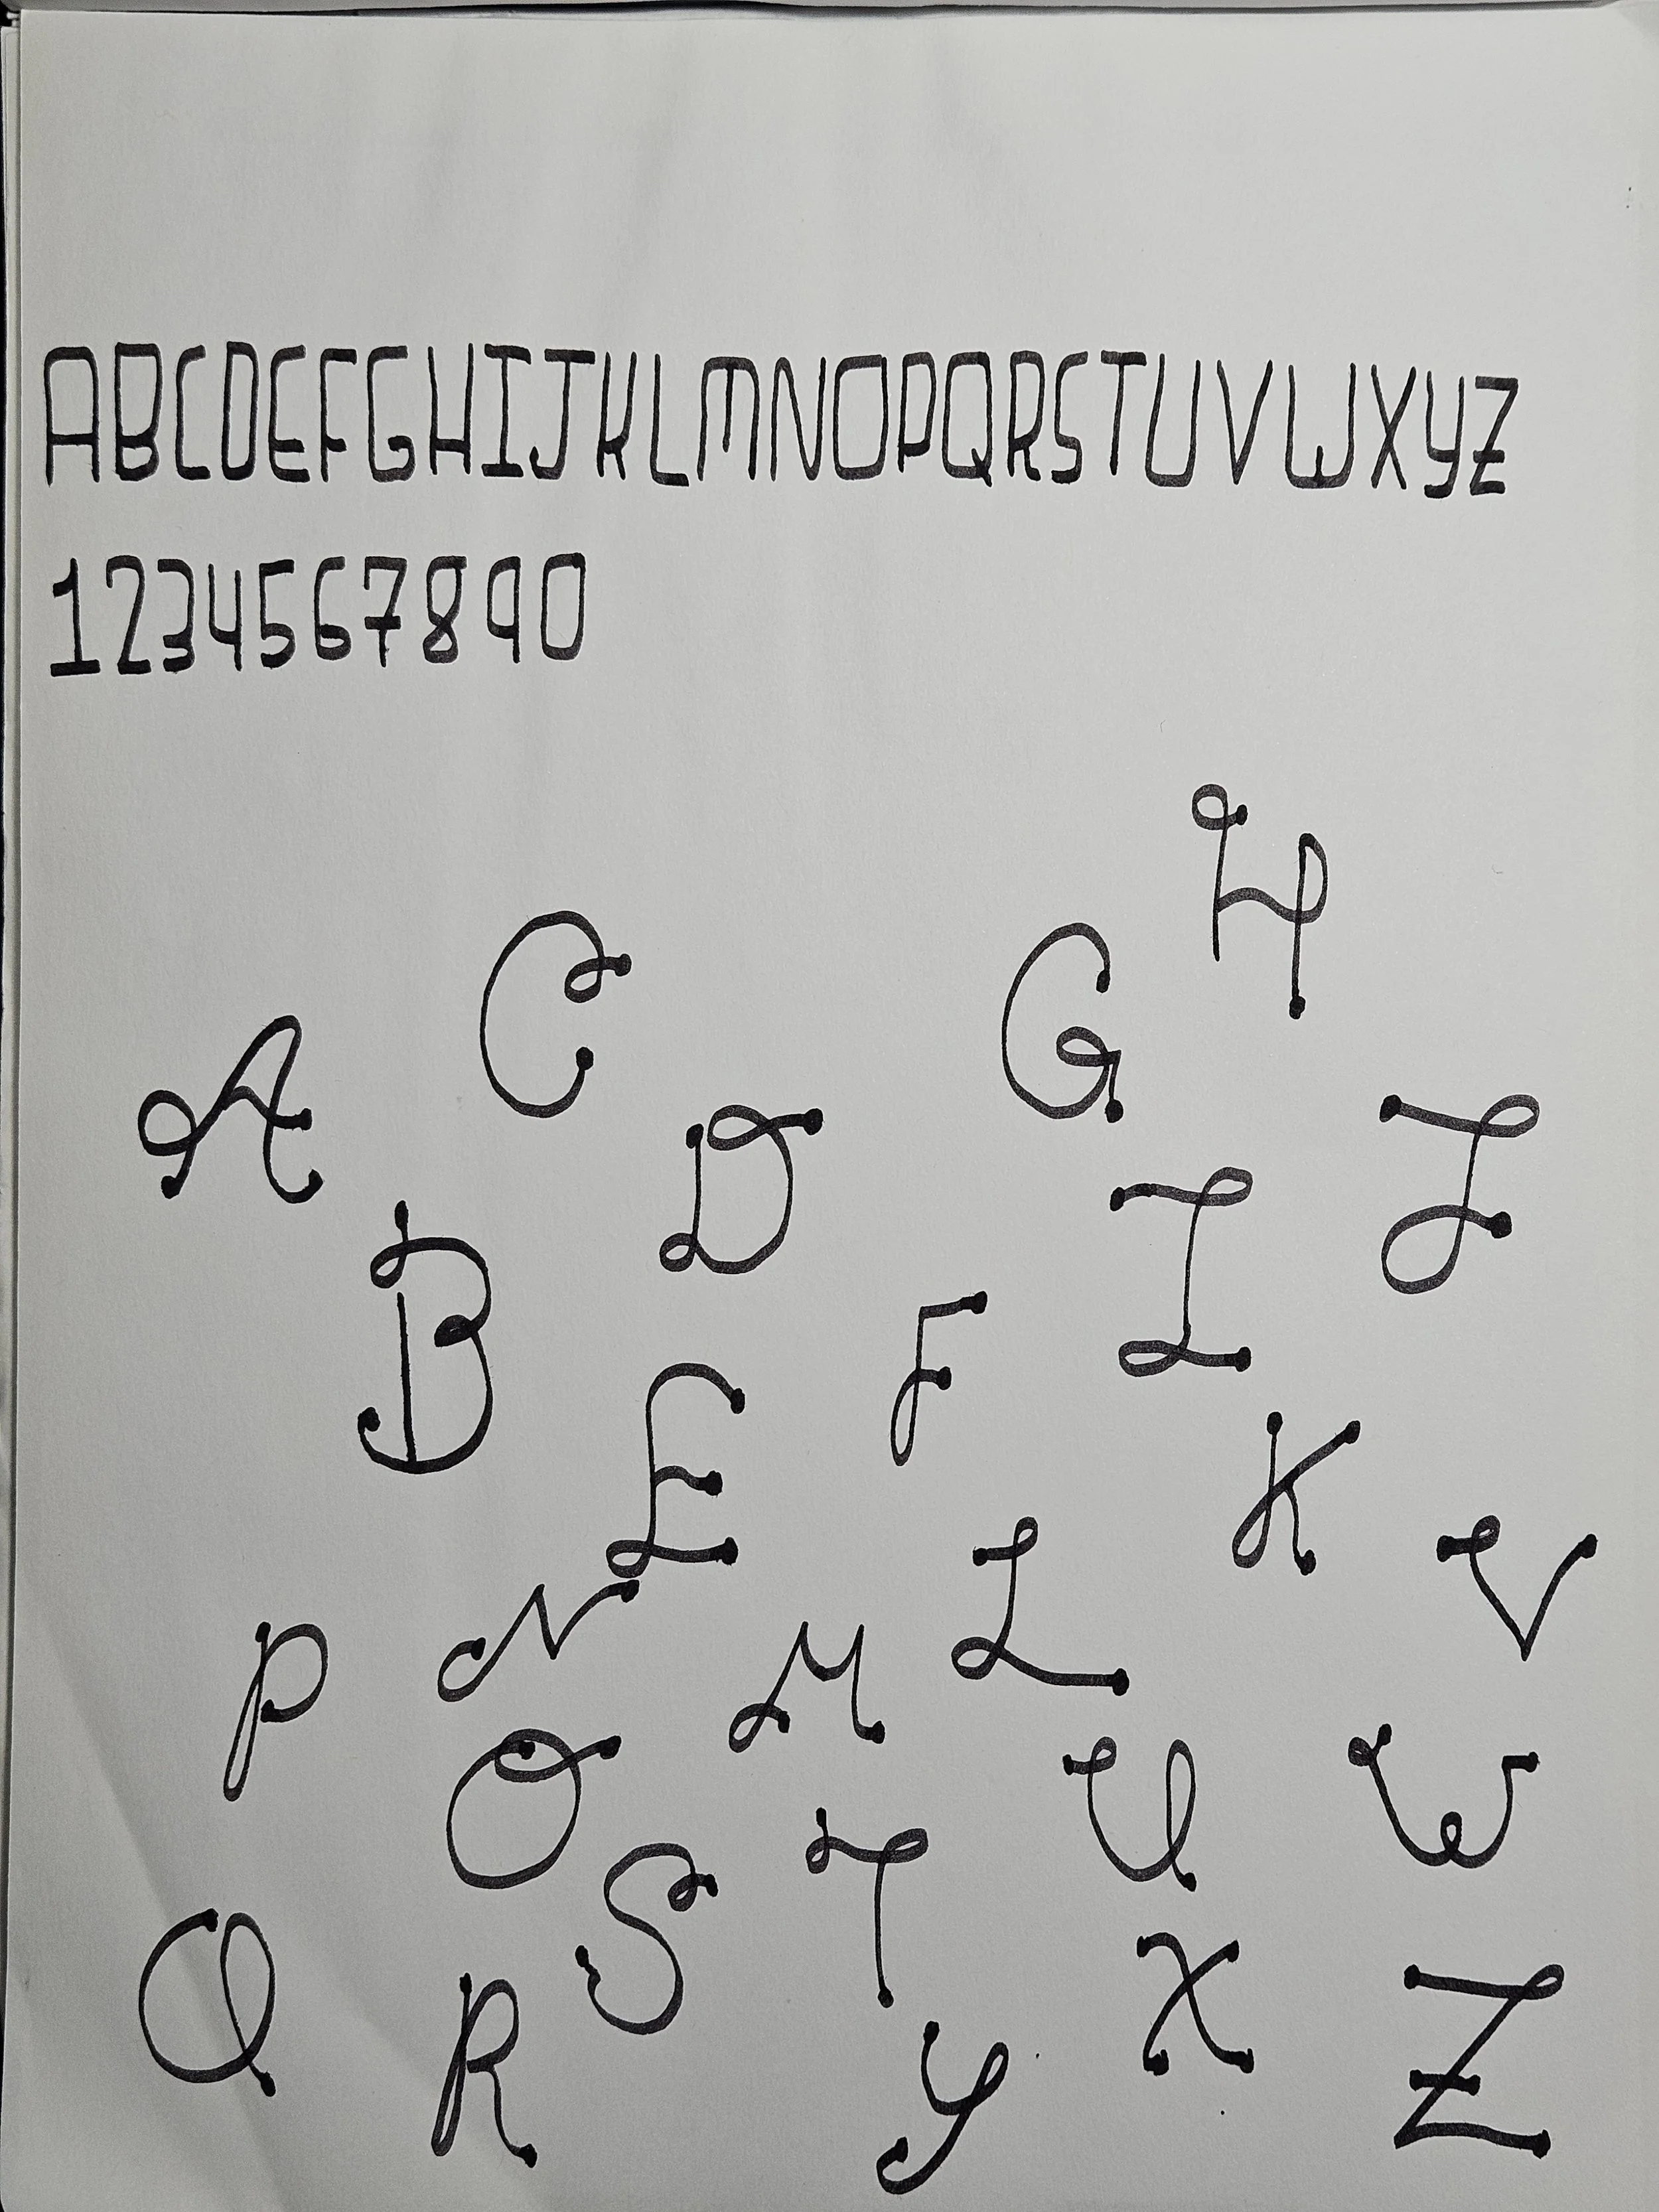 ABCDEFGHIJKLMNOPQRSTUVWXYZ
1234567890
H
C G
A D J
B I
E F K
L V
P N M
O U W
S T
Q R X Z
Y